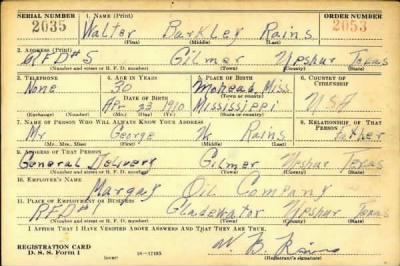 SERIAL NUMBER 1. NAME (Print) ORDER NUMBER
2035 Walter Barkley Rains 2053
(First) (Middle) (Last)
2. ADDRESS (Print)
RFD#5 Gilmer Upshur Texas
(Number and street or R. F. D. number) (Town) (County) (State)
3. TELEPHONE 4. AGE IN YEARS 5. PLACE OF BIRTH 6. COUNTRY OF CITIZENSHIP
None 30 Mohead, Miss.
DATE OF BIRTH (Town or county)
Apr. 23 1910 Mississippi USA
(Exchange) (Number) (Mo.) (Day) (Yr.) (State or country)
7. NAME OF PERSON WHO WILL ALWAYS KNOW YOUR ADDRESS 8. RELATIONSHIP OF THAT PERSON
Mr George W. Rains Father
(Mr., Mrs., Miss) (First) (Middle) (Last)
9. ADDRESS OF THAT PERSON
General Delivery Gilmer Upshur Texas
(Number and street or R. F. D. number) (Town) (County) (State)
10. EMPLOYER'S NAME
Margay Oil Company
11. PLACE OF EMPLOYMENT OR BUSINESS
RFD# Gladewater Upshur Texas
(Number and street or R. F. D. number) (Town) (County) (State)
I AFFIRM THAT I HAVE VERIFIED ABOVE ANSWERS AND THAT THEY ARE TRUE.
W B Rains
REGISTRATION CARD
D. S. S. Form 1 (Registrant's signature)